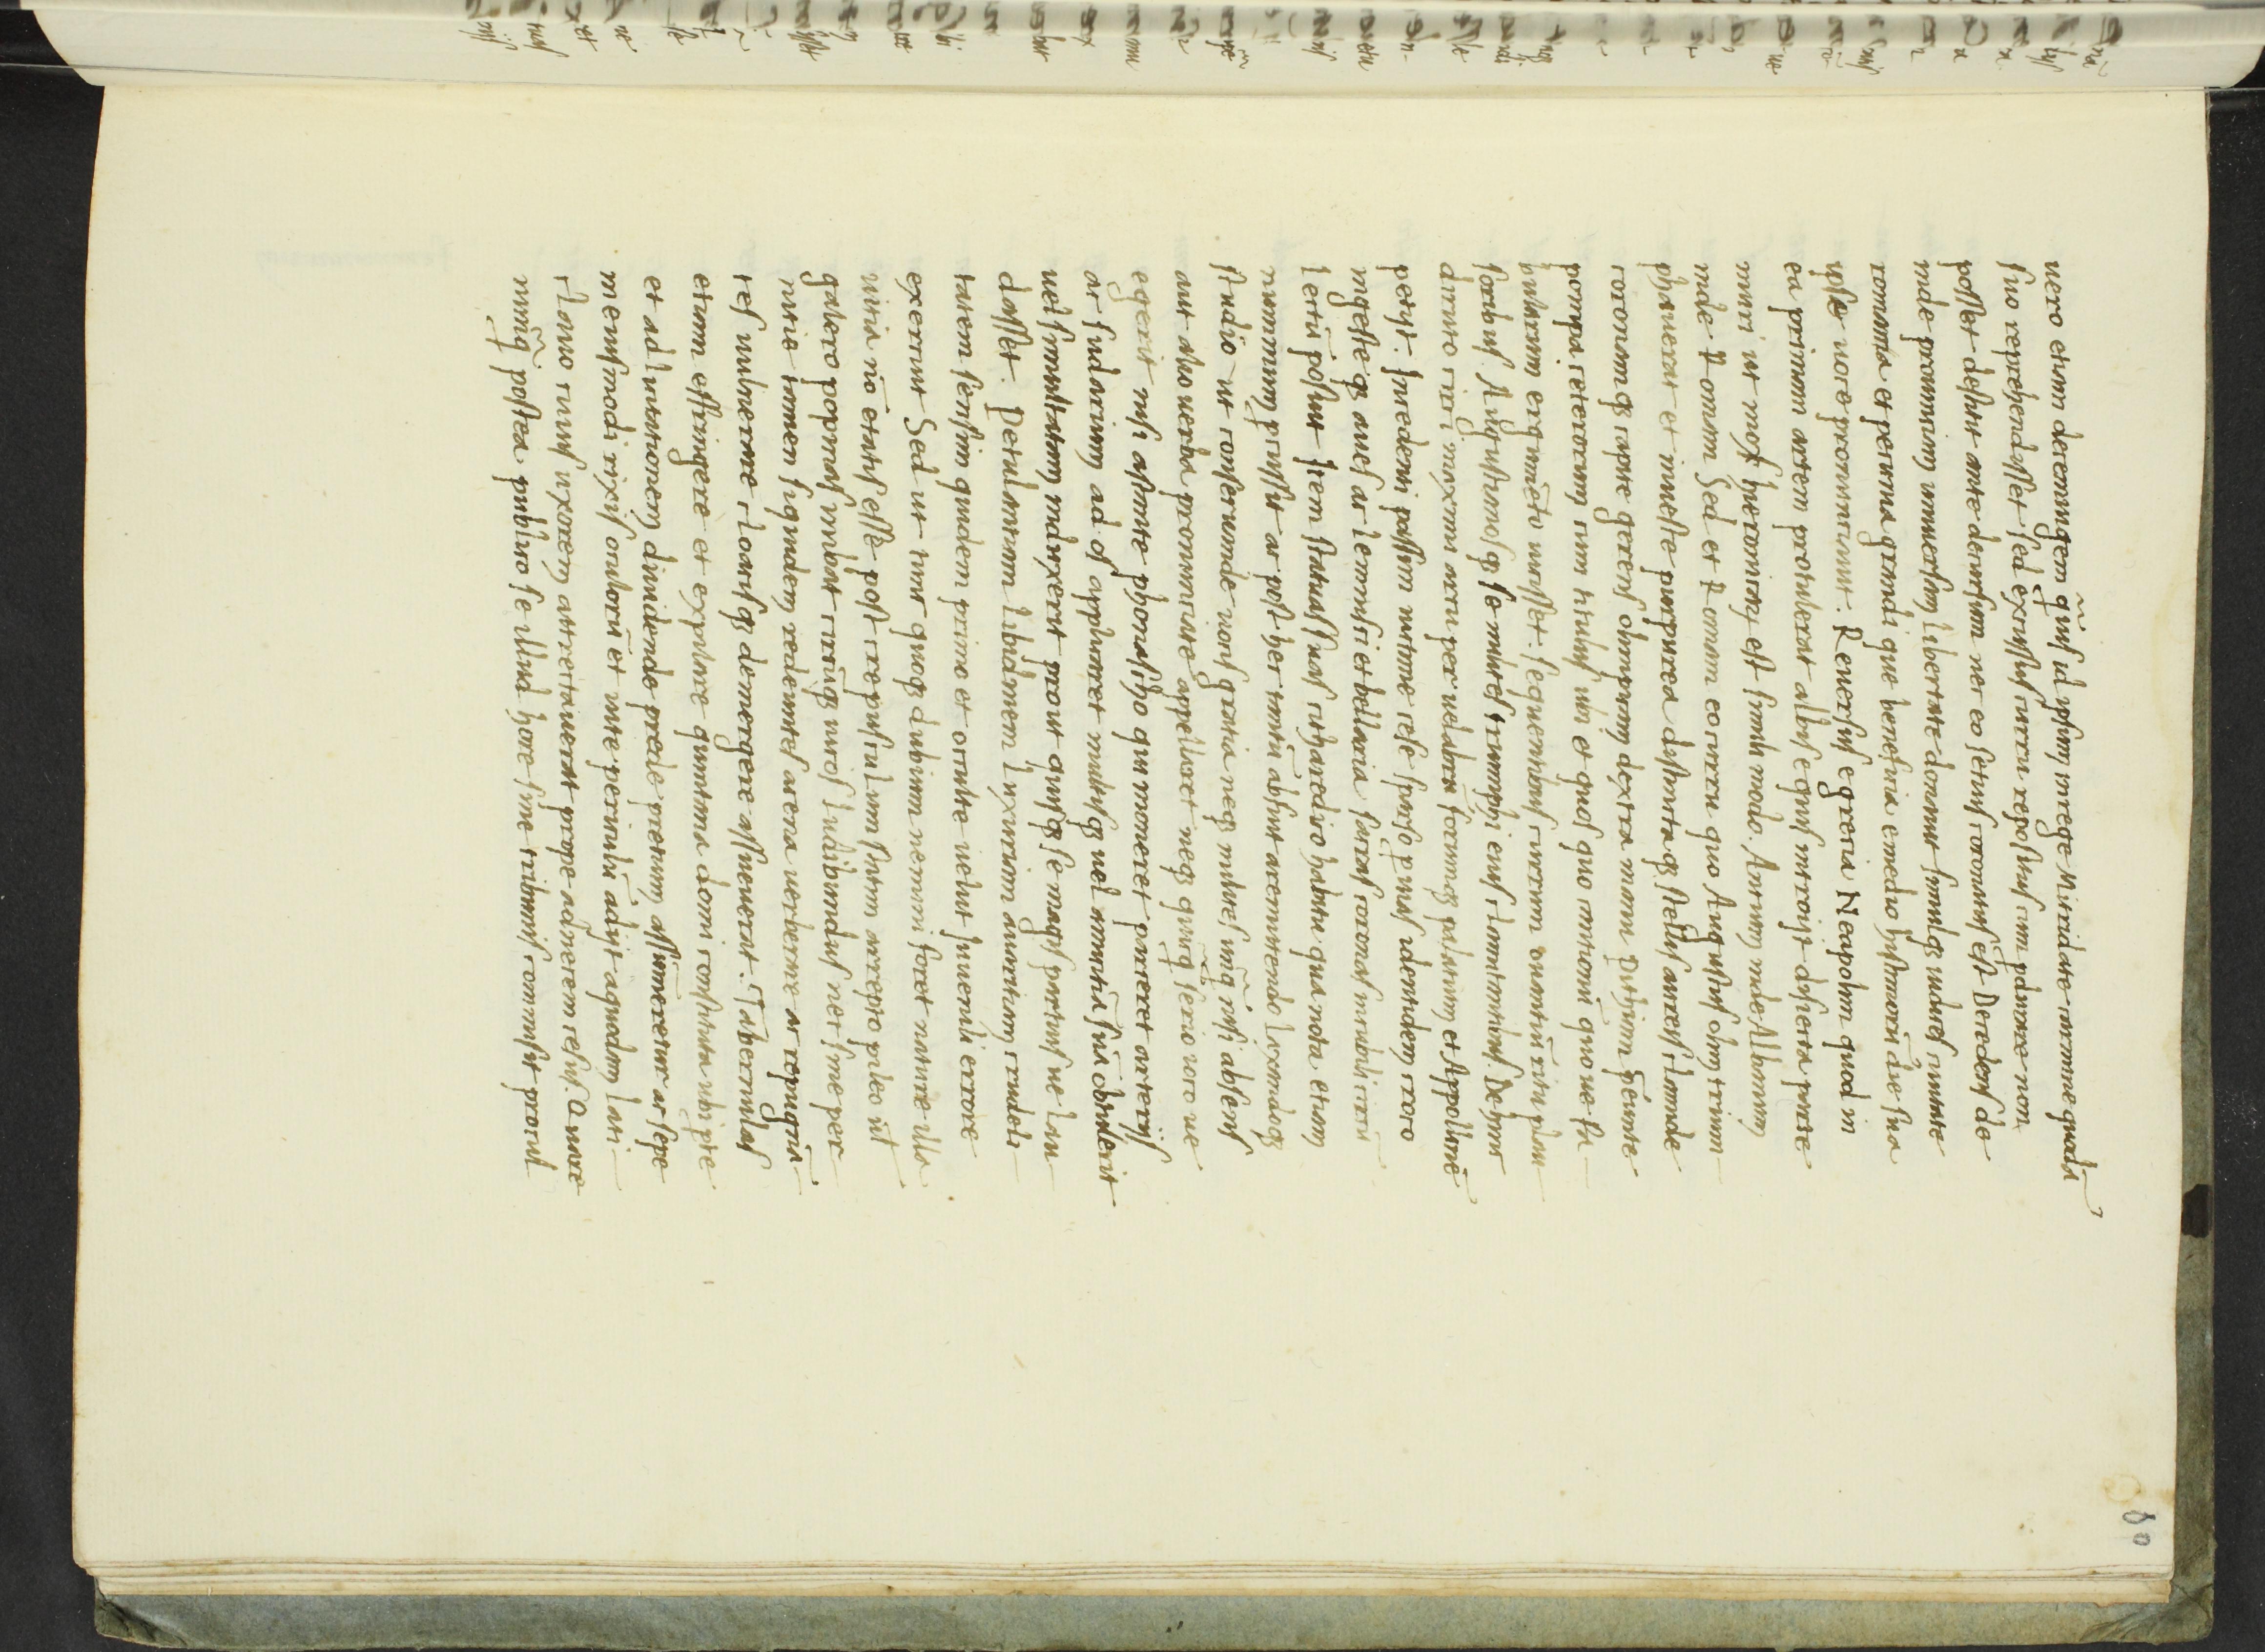 uero etiam decemiugem q̃uis id ipsum inrege Mitridate carmine quodã
suo reprehendisset sed excussus curru repositus cum pdurare non
posset destitit ante decursum nec eo setius coronatus est Decedens de
inde prouinciam uniuersam libertate donauit simulqȝ iudices ciuitate
romana et pecunia grandi que beneficia emedio histmiorũ die sua
ipse uoce pronuntiauit. Reuersus egrecia Neapolim quod in
ea primum artem protulerat albis equis introijt disiecta parte
muri ut mos hieronicarum est simili modo. Antium inde Albanum
inde Romam Sed et Romam eo curru quo Augustus olim trium
phauerat et inueste purpurea distinctaqȝ stellis aureis clamide
coronamqȝ capite gerens olimpiam dextra manu Pithiam p̃eunte
pompa ceterarum cum titulis ubi et quos quo cantionũ quoue fa
bularum argumẽto uicisset. sequentibus currum ouantiũ ritu plau
soribus Augustianosqȝ se milites triumphi eius clamitantibus. Dehinc
diruto circi maximi arcu per uelabrũ forumqȝ palatium et Appolline
petijt. Incedenti passim uictime cese sparso p uias identidem croco
ingesteqȝ aues ac lemnisci et bellaria sacras coronas incubiculis circũ
lectũ posuit Item statuas suas citharedico habitu qua nota etiam
nummum pcussit ac post hec tantũ abfuit aremittendo laxandoqȝ
studio ut conseruande uocis gratia neqȝ milites unq̃ nisi absens
aut alio uerba pronuntiante appellaret neqȝ quicq̃ serio iocoue
egerit nisi astante phonasiho qui moneret parceret arterijs
ac sudarium ad os applicaret multisqȝ uel amicitiã suã obtulerit
uel simultatem indixerit prout quisqȝ se magis partiusue lau
dasset. Petulantiam libidinem luxuriam auaritiam crudeli
tatem sensim quidem primo et occulte uelut Iuuenili errore
exercuit Sed ut tunc quoqȝ dubium nemini foret nature illa
uitia nõ etatis esse post crepusculum statim arrepto pileo ul
galero popinas inibat circũqȝ uicos ludibundus nec sine per
nitie tamen siquidem redeuntes acena uerberare ac repugnã
tes uulnerare cloacisqȝ demergere assueuerat. Tabernulas
etiam effringere et expilare quintana domi constituta ubi pte
et ad licitationem diuidende prede pretium assũmeretur ac sepe
in eiusmodi rixis oculorũ et uite periculũ adijt aquodam lati
clauo cuius uxorem attrectauerat prope adnecem cesus. Quare
nunq̃ postea publico se illud hore sine tribunis commisit procul
80